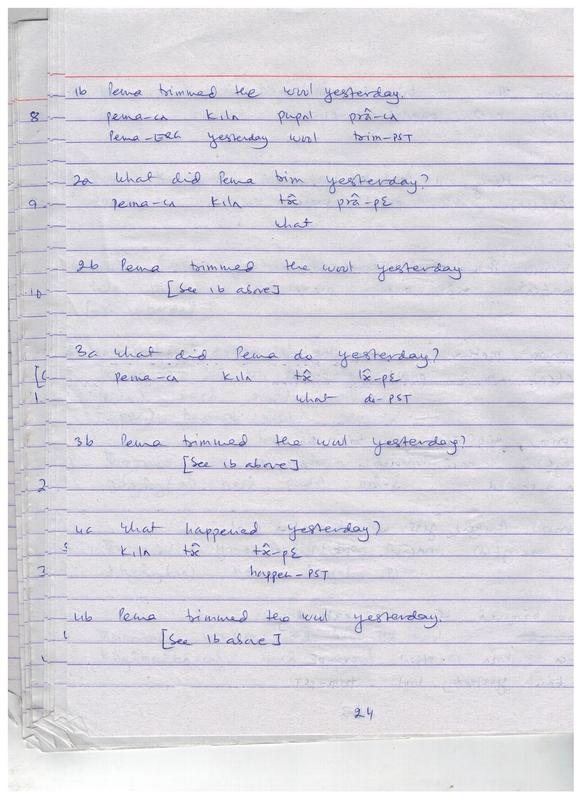 1b Pema trimmed the wool yesterday.
8 pema-cʌ kilʌ pupal prâ-cʌ
Pema-ERG yesterday wool trim-PST
2a What did Pema trim yesterday?
9 pema-cʌ kilʌ prâ-pɛ
what
2b Pema trimmed the wool yesterday
10 [See 1b above]
3a What did Pema do yesterday?
pema-cʌ kilʌ
1 what do-PST
3b Pema trimmed the wool yesterday?
[See 1b above]
2
4a What happened yesterday?
kilʌ
3 happen-PST
4b Pema trimmed the wool yesterday.
[See 1b above]
24